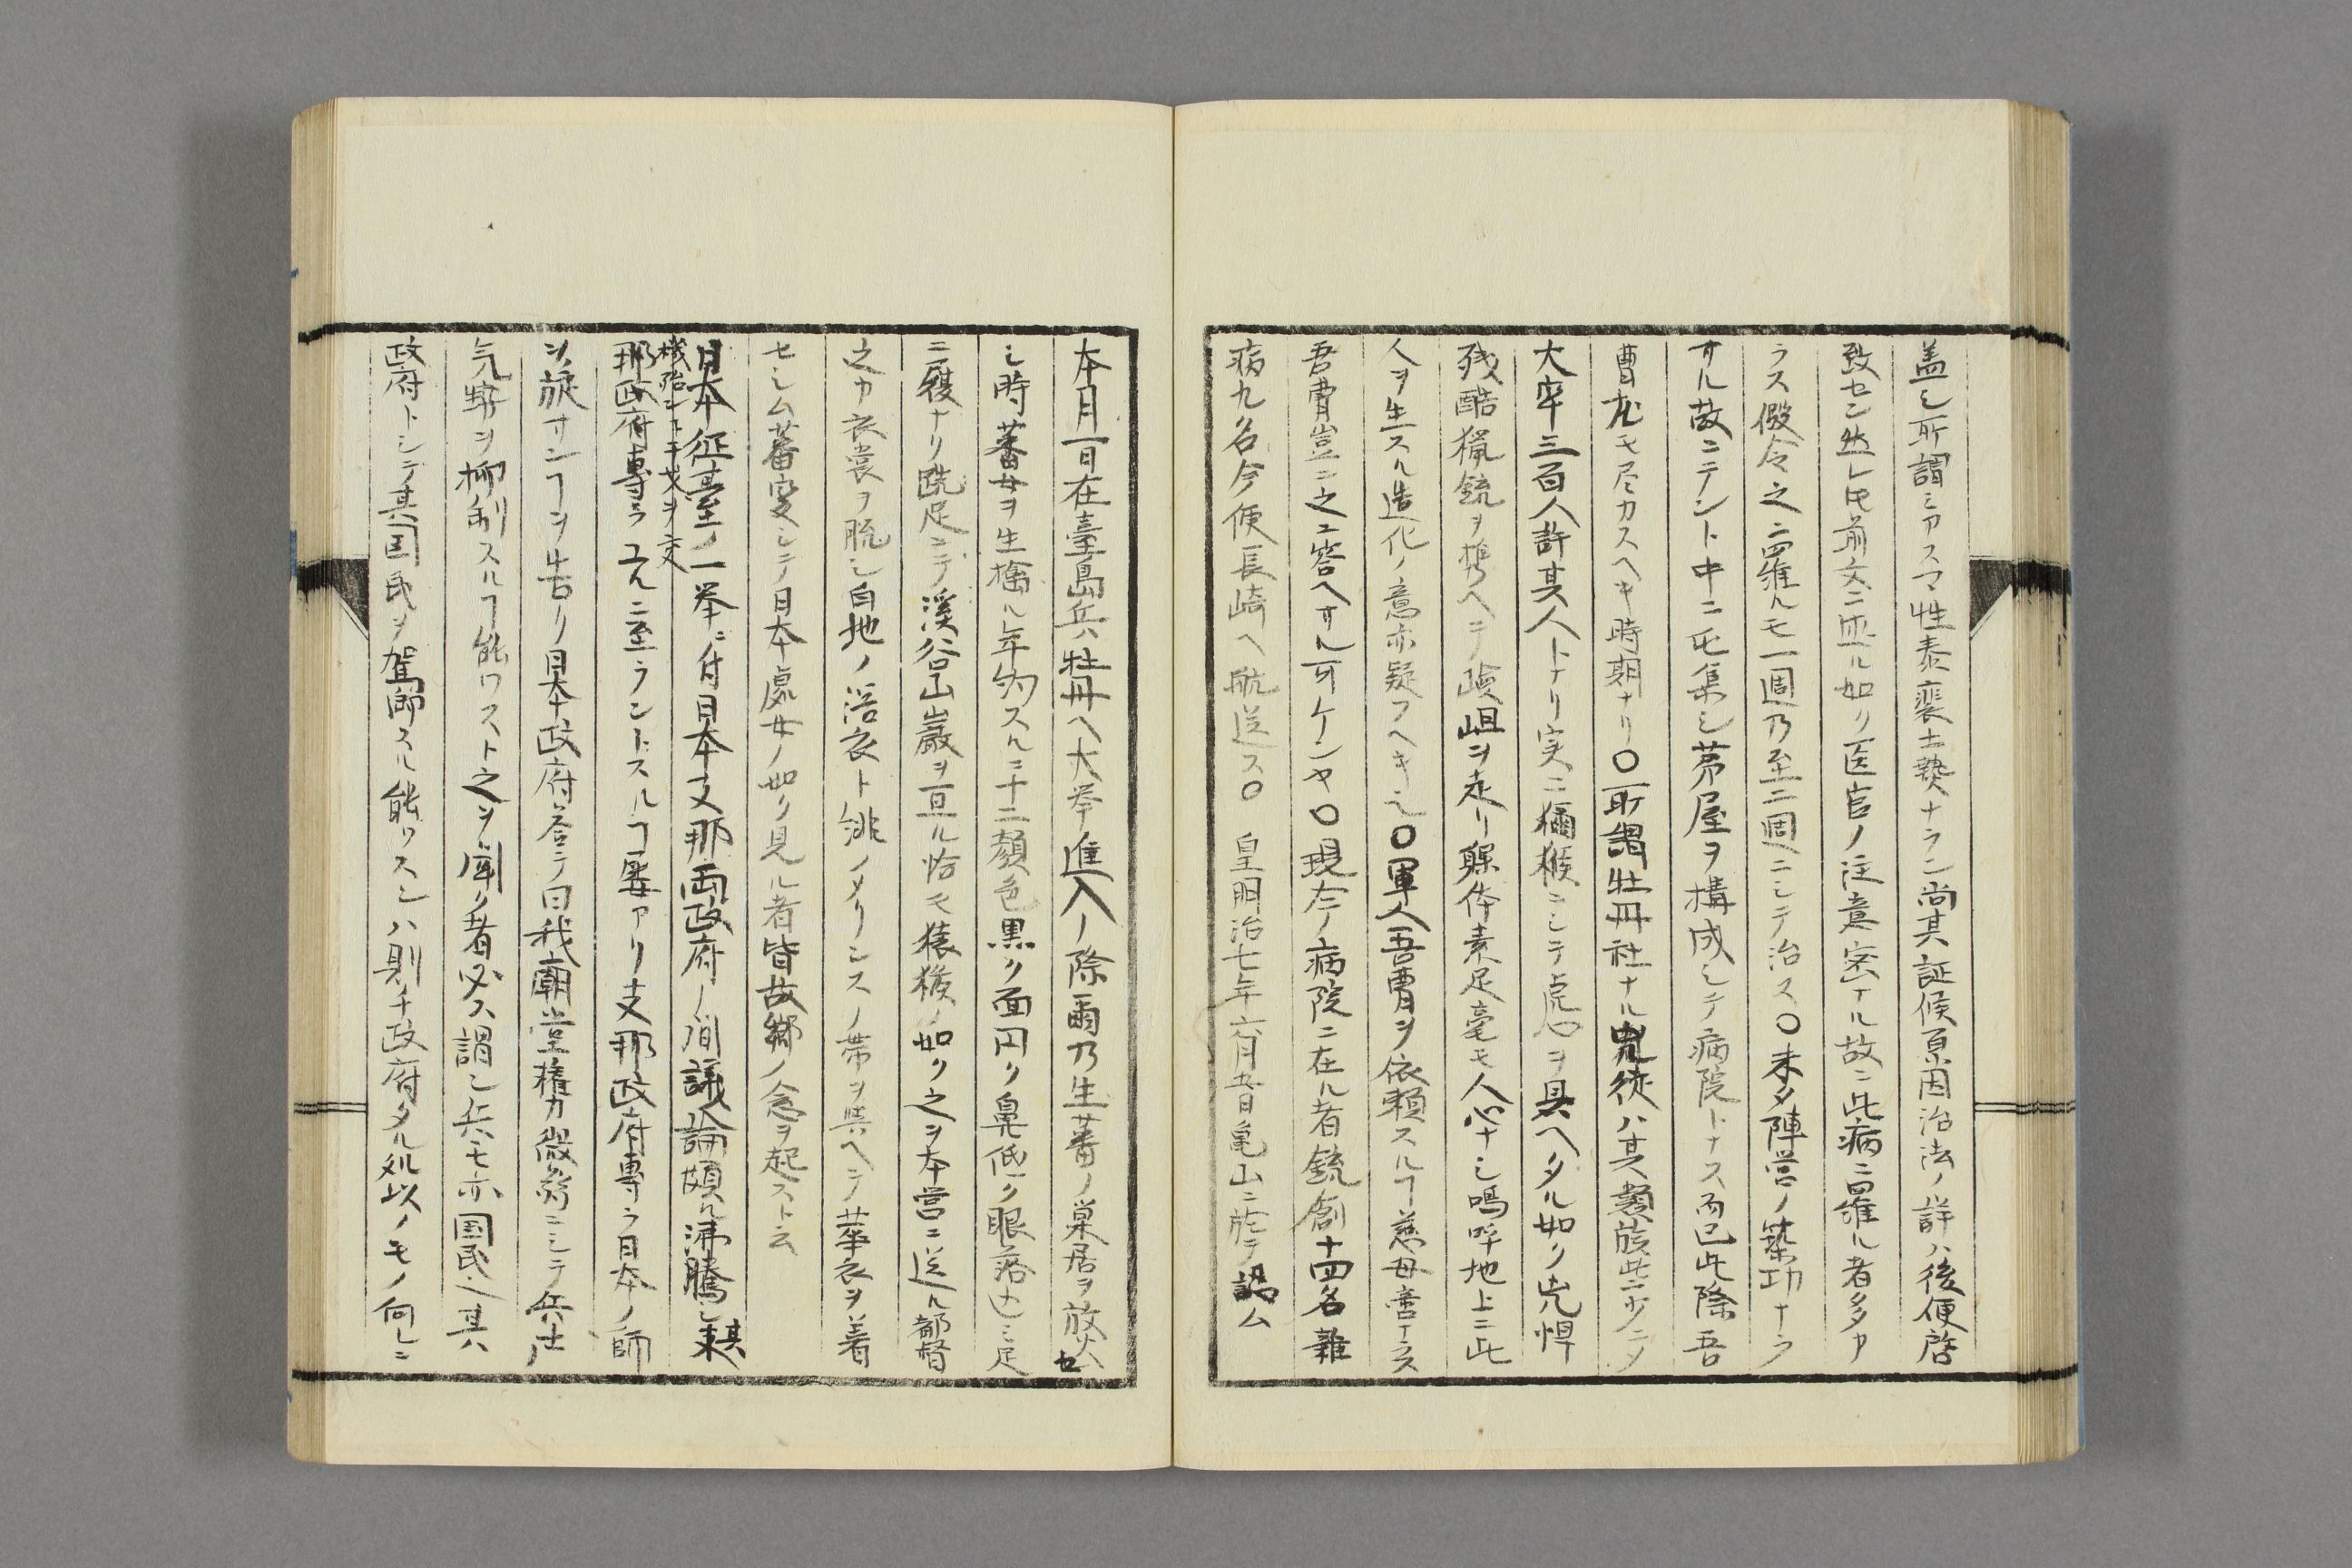 蓋シ所謂ミアスマ性泰裴士熱ナラン尚其証候原因治法ノ詳ハ後便啓
致セン然レ㆑前文ニ並ル如ク医官ノ注意密ナル故ニ此病ニ罹ル者多カ
ラス假令之ニ罹ルモ一週乃至二週ニシテ治ス〇未タ陣営ノ築功ナラ
サル故ニテント中ニ屯集シ茅屋ヲ構成シテ病院トナス而已此際吾
曹尤モ尽力スヘキ時期ナリ〇所謂牡丹社ナル兇徒ハ其類族些少ニメ
大率三百人許其人トナリ実ニ獼猴ニシテ虎心ヲ具ヘタル如ク兇悍
残酷猟銃ヲ携ヘテ嶮岨ヲ走リ躶体素足毫モ人心ナシ嗚呼地上ニ此
人ヲ生スル造化ノ意亦疑フヘキ也〇軍人吾曹ヲ依頼スルヿ慈母啻ナラス
吾曹豈ニ之ニ答ヘサル可ケンヤ〇現在ノ病院ニ在ル者銃創十四名雜
病九名今便長崎ヘ航送ス〇 皇明治七年六月五日亀山ニ於テ認ム
本月一日在臺島兵ハ牡丹ヘ大挙進入ノ際爾乃生蕃ノ巣居ヲ放火セ
シ時蕃女ヲ生擒ル年殆スルニ十二顔色黒ク面円ク鼻低ク眼落込ミ足
ニ履ナク跣足ニテ渓谷山巌ヲ亘ル恰モ猿猴ノ如ク之ヲ本営ニ送ル都督
之カ衣裳ヲ脱シ白地ノ浴衣ト緋ノメリンスノ帯ヲ與ヘテ華衣ヲ着
セシム蕃変シテ日本處女ノ如ク見ル者皆故郷ノ念ヲ起スト云
日本征臺ノ一挙ニ付日本支那両政府ノ間議論頗ル沸騰シ其来
機殆ント干戈ヲ交
ユルニ至ラントスルヿ屡アリ支那政府専ラ日本ノ師
ヲ旋サンヿヲ告ク日本政府答テ曰我廟堂権力微弱ニシテ兵士
気勢ヲ抑制スルヿ能ワスト之ヲ聞ク者必ス謂ン兵モ亦国民也其ハ
政府トシテ其国民ヲ駕御スル能ワスンハ則チ政府タル処以ノモノ何レニ